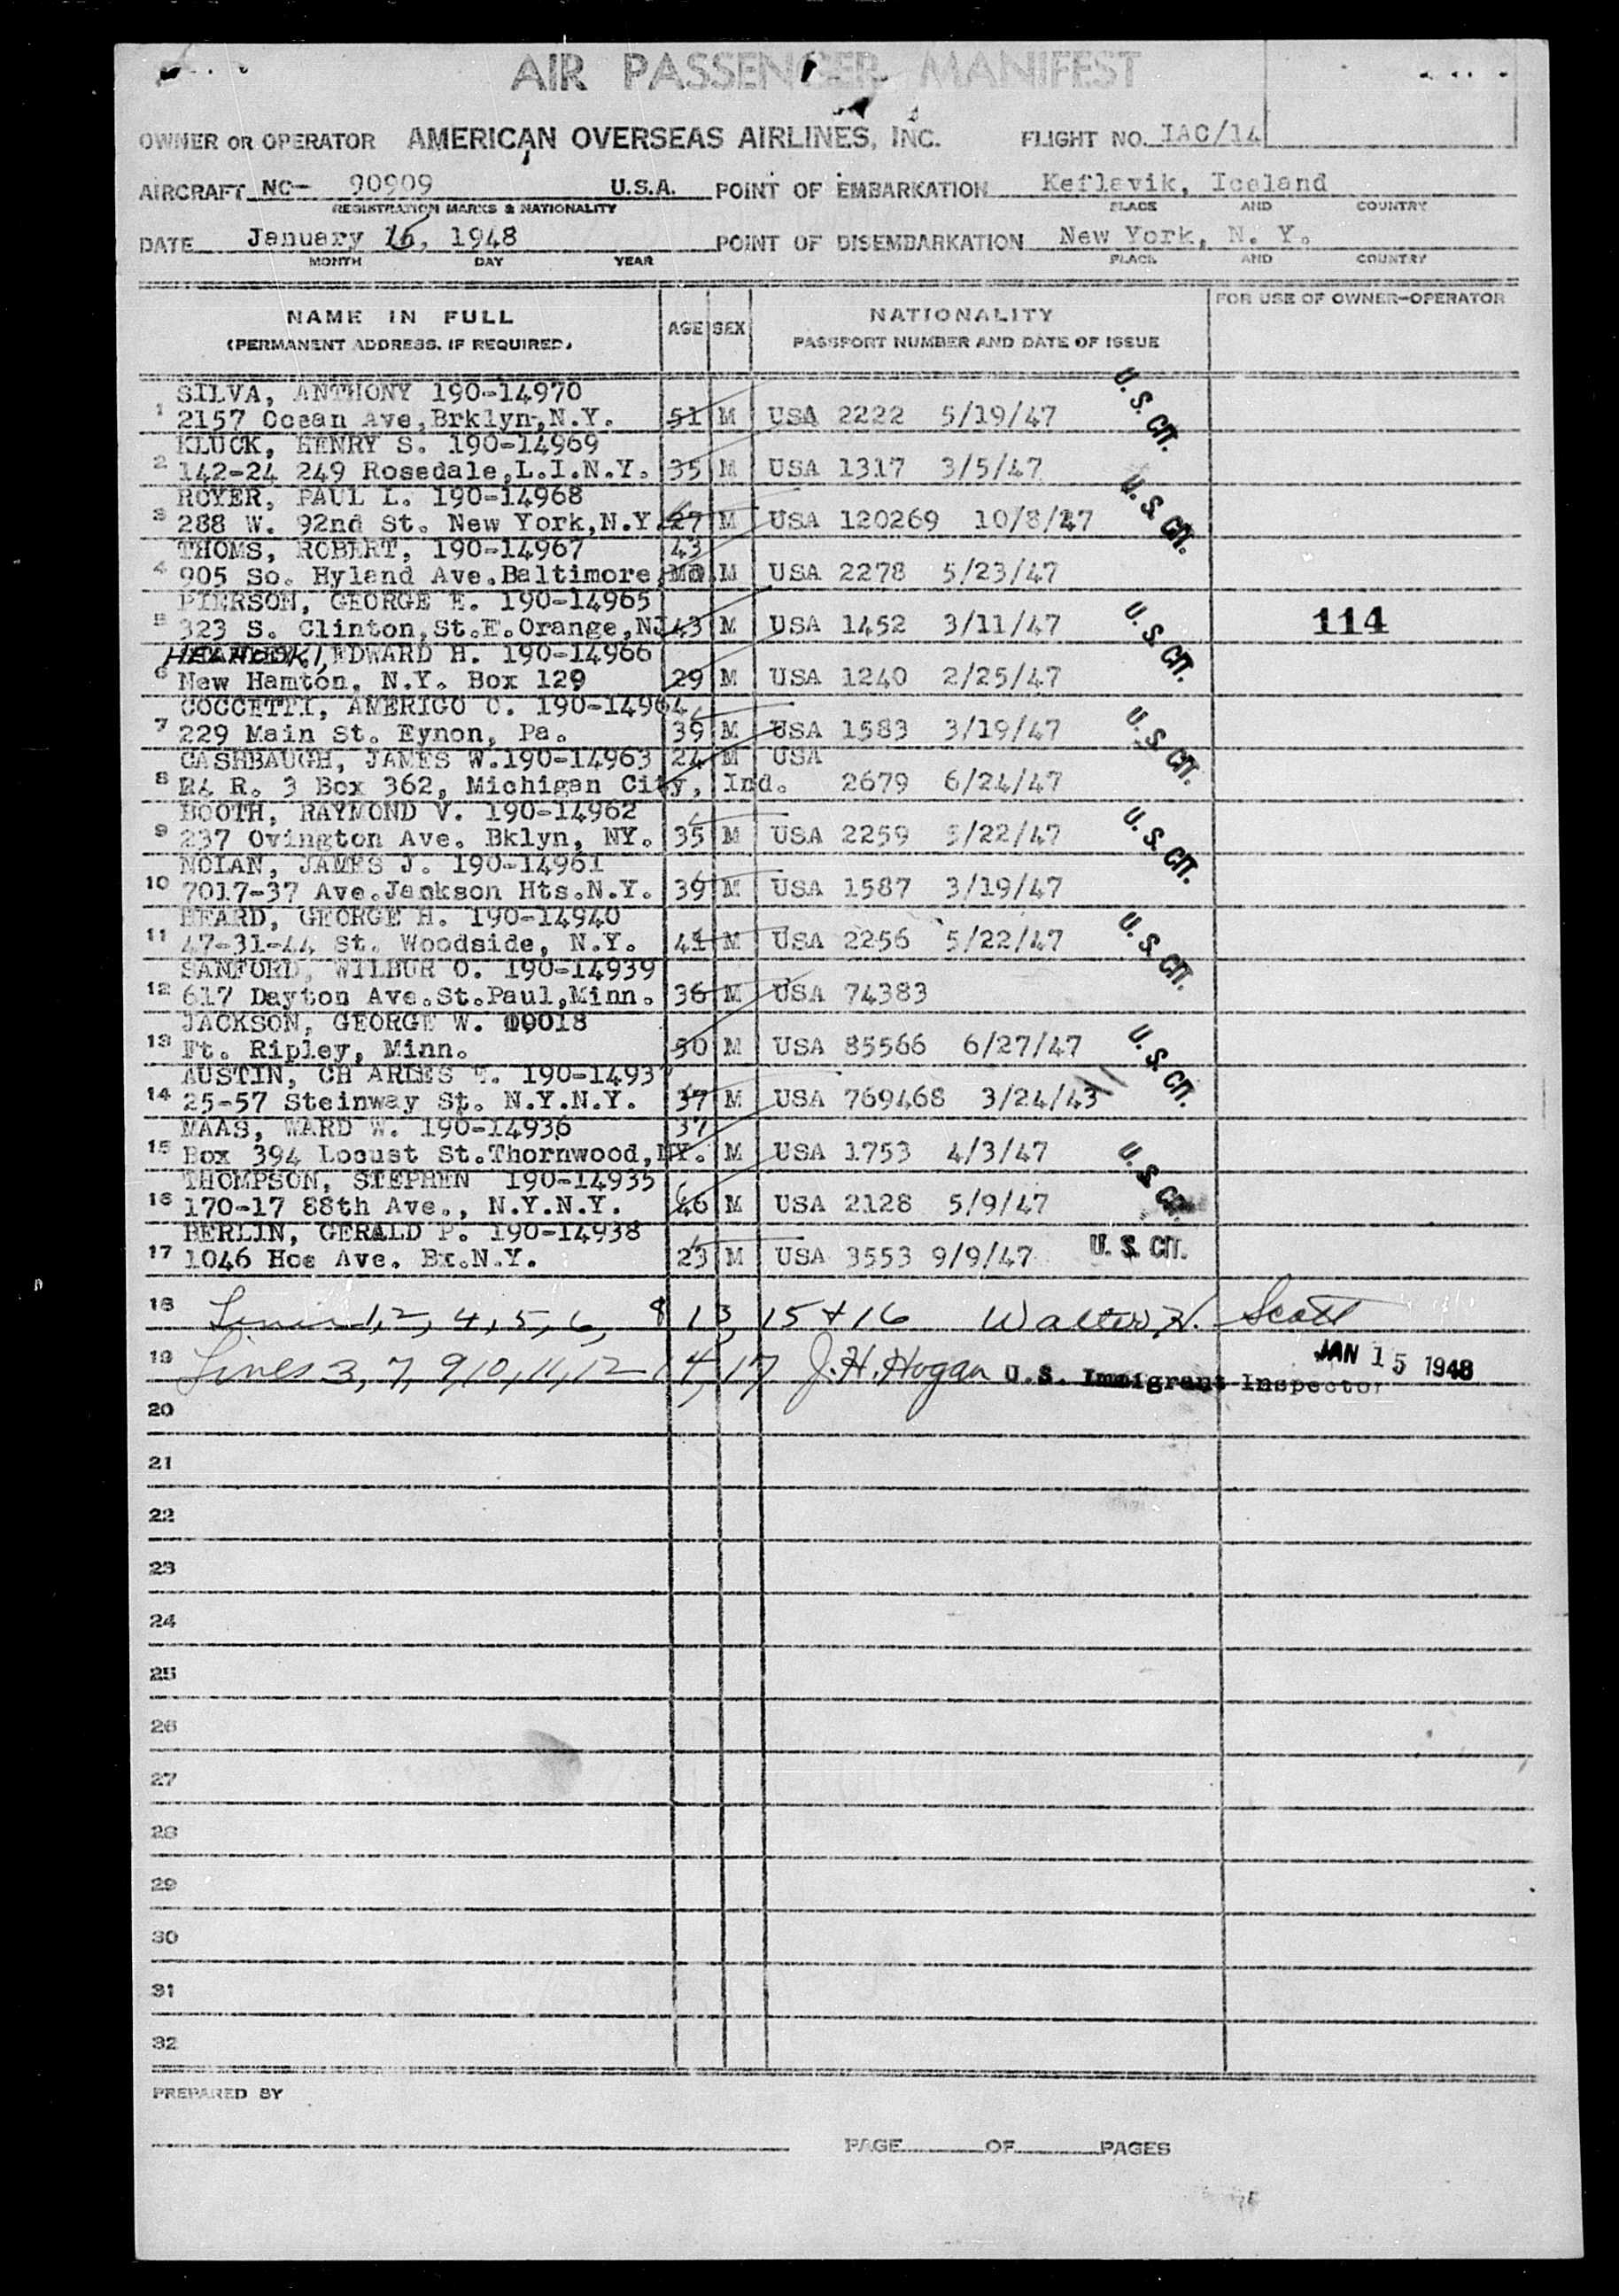 AIR PASSENGER MANIFEST
OWNER OR OPERATOR AMERICAN OVERSEAS AIRLINES, INC. FLIGHT NO. IAC/14
AIRCRAFT NC- 90909 U.S.A. POINT OF EMBARKATION Keflavik, Iceland
REGISTRATION MARKS & NATIONALITY PLACE AND COUNTRY
DATE January 15, 1948 POINT OF DISEMBARKATION New York, N. Y.
MONTH DAY YEAR PLACE AND COUNTRY
NAME IN FULL AGE SEX NATIONALITY FOR USE OF OWNER-OPERATOR
(PERMANENT ADDRESS, IF REQUIRED) PASSPORT NUMBER AND DATE OF ISSUE
SILVA, ANTHONY 190-14970
1 2157 Ocean Ave,Brklyn,N.Y. 51 M USA 2222 5/19/47 U. S. CIT.
KLUCK, HENRY S. 190-14969
2 142-24 249 Rosedale,L.I.N.Y. 35 M USA 1317 3/5/47
ROYER, PAUL L. 190-14968
3 288 W. 92nd St. New York,N.Y. 27 M USA 120269 10/8/47 U. S. CIT.
THOMS, ROBERT, 190-14967 43
4 905 So. Hyland Ave.Baltimore,Md. M USA 2278 5/23/47
PIERSON, GEORGE E. 190-14965
5 323 S. Clinton,St.E.Orange,NJ 43 M USA 1452 3/11/47 U. S. CIT. 114
EDWARD H. 190-14966
6 New Hamton, N.Y. Box 129 29 M USA 1240 2/25/47
COCCETTI, AMERIGO C. 190-14964
7 229 Main St. Eynon, Pa. 39 M USA 1583 3/19/47 U. S. CIT.
CASHBAUGH, JAMES W.190-14963 24 M USA
8 R. R. 3 Box 362, Michigan City, Ind. 2679 6/24/47
BOOTH, RAYMOND V. 190-14962
9 237 Ovington Ave. Bklyn, NY. 35 M USA 2259 5/22/47 U. S. CIT.
NOLAN, JAMES J. 190-14961
10 7017-37 Ave.Jackson Hts.N.Y. 39 M USA 1587 3/19/47
BEARD, GEORGE H. 190-14940
11 47-31-44 St. Woodside, N.Y. 41 M USA 2256 5/22/47 U. S. CIT.
SANFORD, WILBUR O. 190-14939
12 617 Dayton Ave.St.Paul,Minn. 36 M USA 74383
JACKSON, GEORGE W. 09018
13 Ft. Ripley, Minn. 50 M USA 85566 6/27/47 U. S. CIT.
AUSTIN, CH ARLES T. 190-14937
14 25-57 Steinway St. N.Y.N.Y. 37 M USA 769468 3/24/43
MAAS, WARD W. 190-14936 37
15 Box 394 Locust St.Thornwood,NY. M USA 1753 4/3/47 U. S. CIT.
THOMPSON, STEPHEN 190-14935
16 170-17 88th Ave., N.Y.N.Y. 46 M USA 2128 5/9/47
BERLIN, GERALD P. 190-14938
17 1046 Hoe Ave. Bx.N.Y. 23 M USA 3553 9/9/47 U. S. CIT.
18 Lines 1, 2, 4, 5, 6, 8 13, 15 + 16 Walter H. Scott
19 Lines 3, 7, 9, 10, 11, 12 14, 17 J. H. Hogan U.S. Immigrant Inspector JAN 15 1948
20
21
22
23
24
25
26
27
28
29
30
31
32
PREPARED BY
PAGE OF PAGES